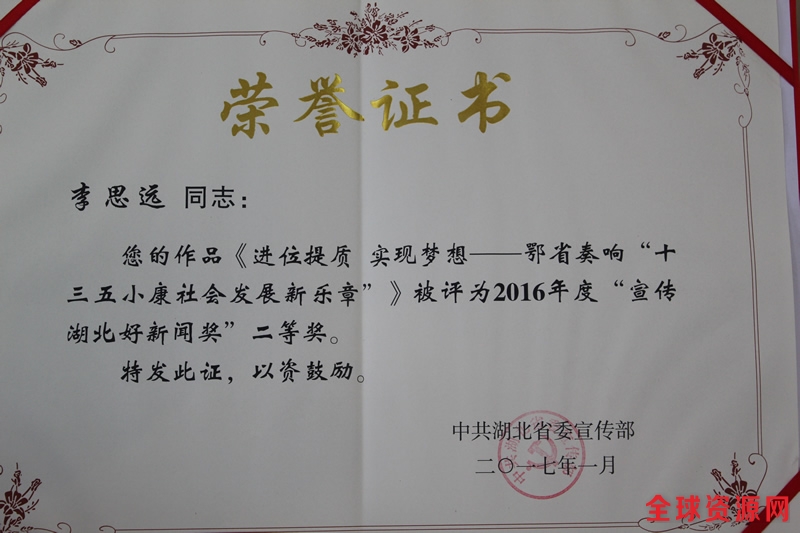 荣誉证书
李思远 同志：
您的作品《进位提质 实现梦想——鄂省奏响“十
三五小康社会发展新乐章”》被评为2016年度“宣传
湖北好新闻奖”二等奖。
特发此证，以资鼓励。
中共湖北省委宣传部
二〇一七年一月
全球资源网